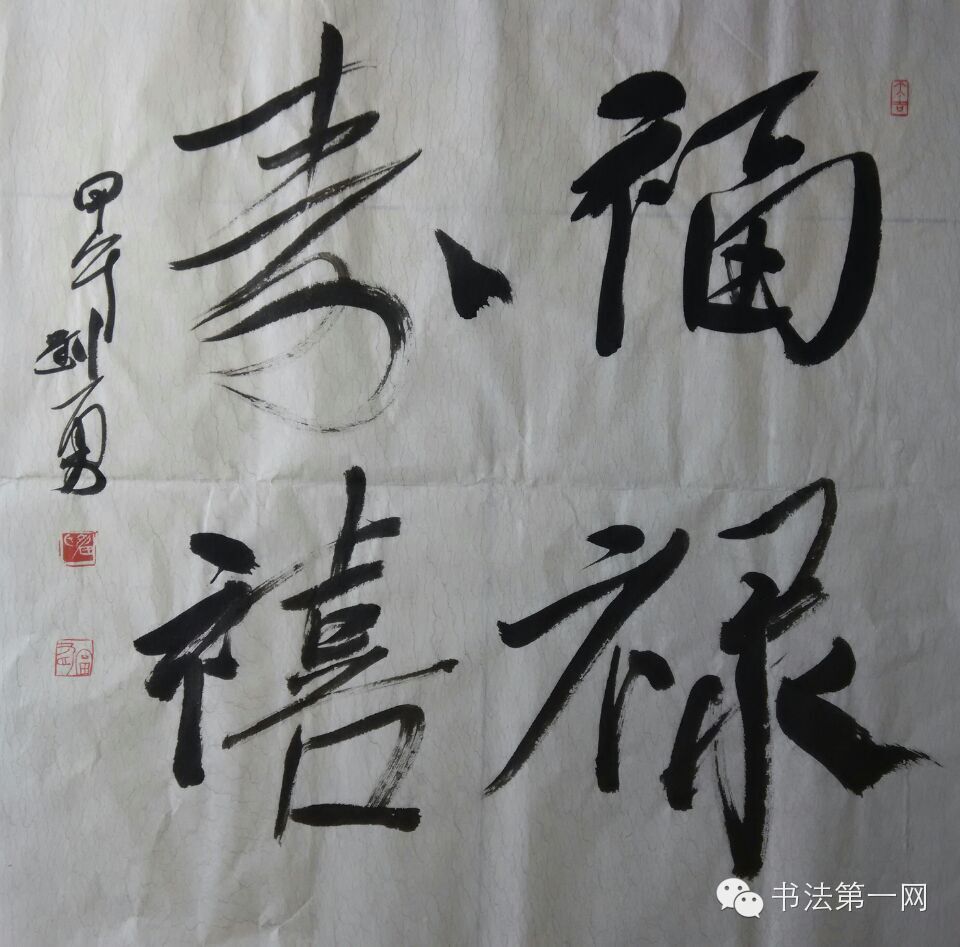 福禄
寿禧
甲午 刘勇
大吉
书法第一网